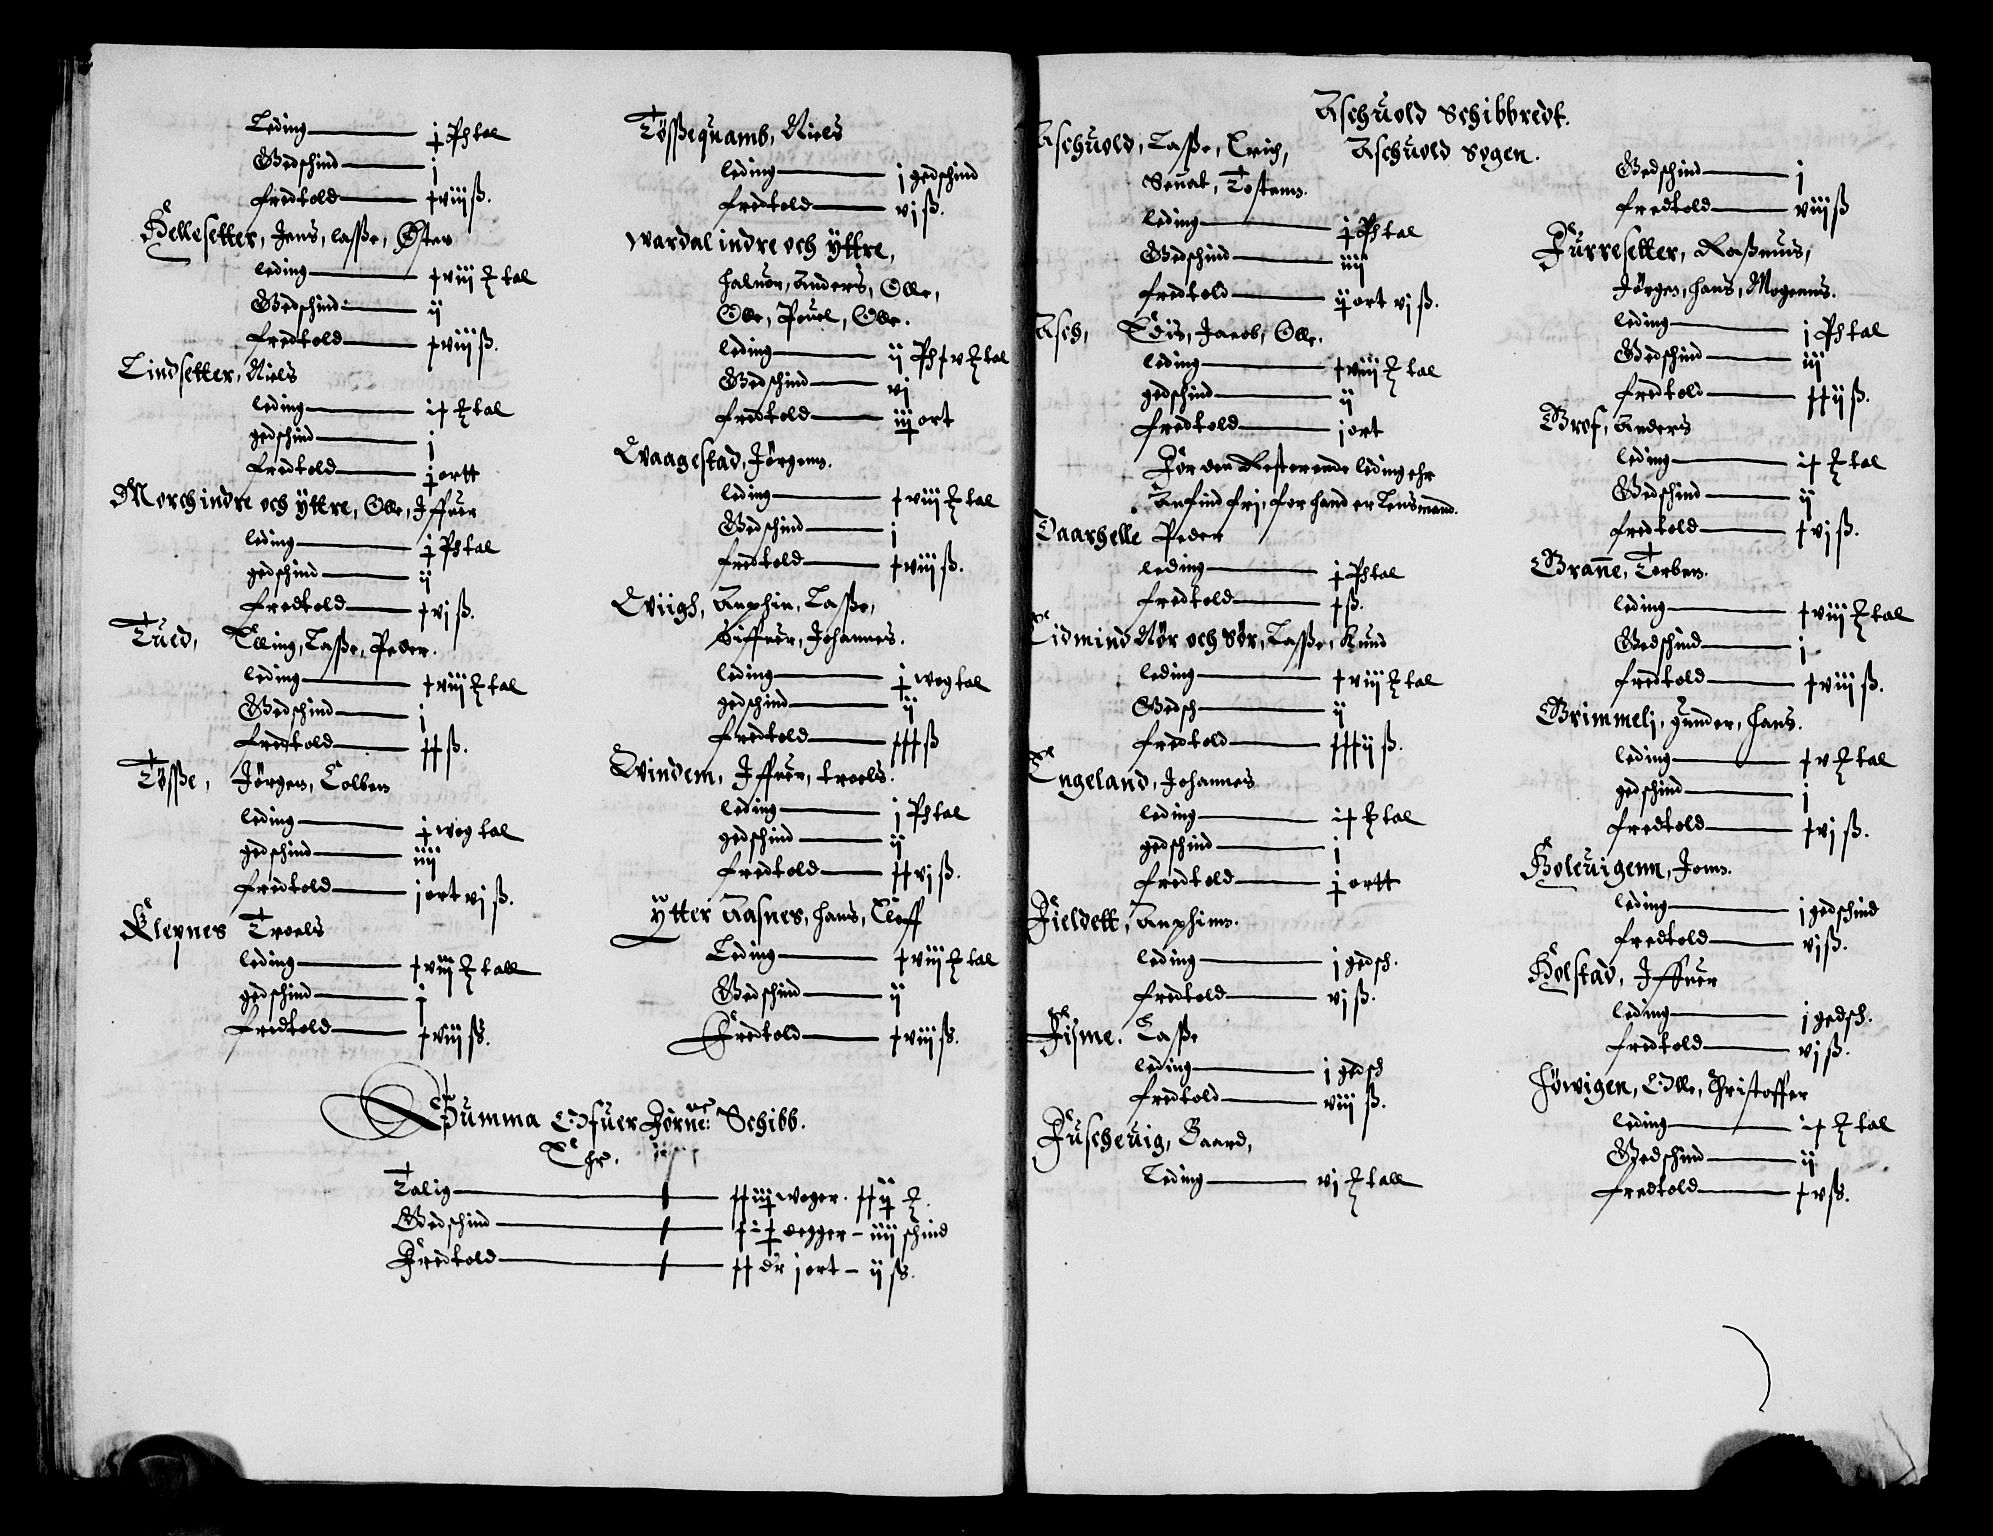 Leding j Pſ tal
Gedschind j
fredtold + viij ß.
Hellesetter, Jens, lasse, Østen
leding + viij # tal
Gedschind ij
fredtold + viij ß.
Lindsetter, Niels
leding i+ # tal
gedschind j
fredtold j ortt
Morch indre och ÿttre, Olle, Iffuer
leding j Pſ tal
gedschind ij
fredtold + vj ß.
Tued, Elling, Lasse, Peder.
leding + viij # tal
Gedschind j
fredtold ++ ß.
Tösse, Jörgen, Colben
leding j wog tal
gedschind iiij
fredtold j ort vj ß.
Klepnes Troels
leding + viij # tall
gedschind j
fredtold + viij ß.
Tössequamb, Niels
leding j gedschind
fredtold vj ß.
Wardal indre och ÿttre,
Haluor, Anders, Olle,
Olle, Pouel, Olle.
leding ij Pſ + v # tal
Gedschind vj
fredtold iij ort
Quaagestad, Jörgen.
leding + viij # tal
Gedschind j
fredtold + viij ß.
Quiigh, Anphin, Lasse,
Siffuer, Johannes.
leding j wog tal
gedschind ij
fredtold +++ ß
Quindem, Iffuer, troels.
leding j Pſ tal
gedschind ij
fredtold ++ vj ß.
Ytter Aasnes, Hans, Eloff
Leding + viij # tal
Gedschind ij
Fredtold + viij ß.
Summa Offuer Jörne: Schibb.
Ehr.
Talig ++ iij woger. ++ ij #.
Gedschind + i + degger - iiij schind
Fredtold ++ dr j ort - ij ß.
Aschuold Schibbredt.
Aschuold Sogen.
Aschuold, Lasse, Erich,
Senat, Tosten.
leding j Pſ tal
Gedschind iiij
fredtold ij ort vj ß.
Asch, Edis, Jacob, Olle.
leding + viij # tal
gedschind ij
fredtold j ort
För den Resterende leding ehr
Anfind fri, for hand er Lensmand.
Daarhelle Peder
leding j Pſ tal
fredtold + ß.
Eidmind Nör och Sör, Lasse, Knud
leding + viij # tal
Gedsch ij
fredtold +++ ij ß.
Engeland, Johannes
leding i+ # tal
gedschind j
fredtold j ortt
Fieldett, Anphin.
leding j gedsch.
fredtold vj ß.
Fisme. Lasse
leding j gedsch
fredtold viij ß.
Fuscheuig, Baard,
Leding vj # tall
Gedschind j
fredtold viij ß
Furresetter, Rasmus,
Jörgen, Hans, Mogens.
leding j Pſ tal
Gedschind iij
fredtold ++ ij ß.
Brof, Anders
leding i+ # tal
Gedschind ij
fredtold + vj ß.
Branne, Torben.
leding + viij # tal
Gedschind j
fredtold + viij ß.
Brimmelj, Gunder, Hans.
leding + v # tal
gedschind j
fredtold + vj ß.
Holeuigenn, Jon.
leding j gedschind
fredtold vj ß.
Holstad, Iffuer
leding j gedsch.
fredtold vj ß.
Höwigen, Olle, Christoffer
leding i+ # tal
Gedschind ij
fredtold + v ß.